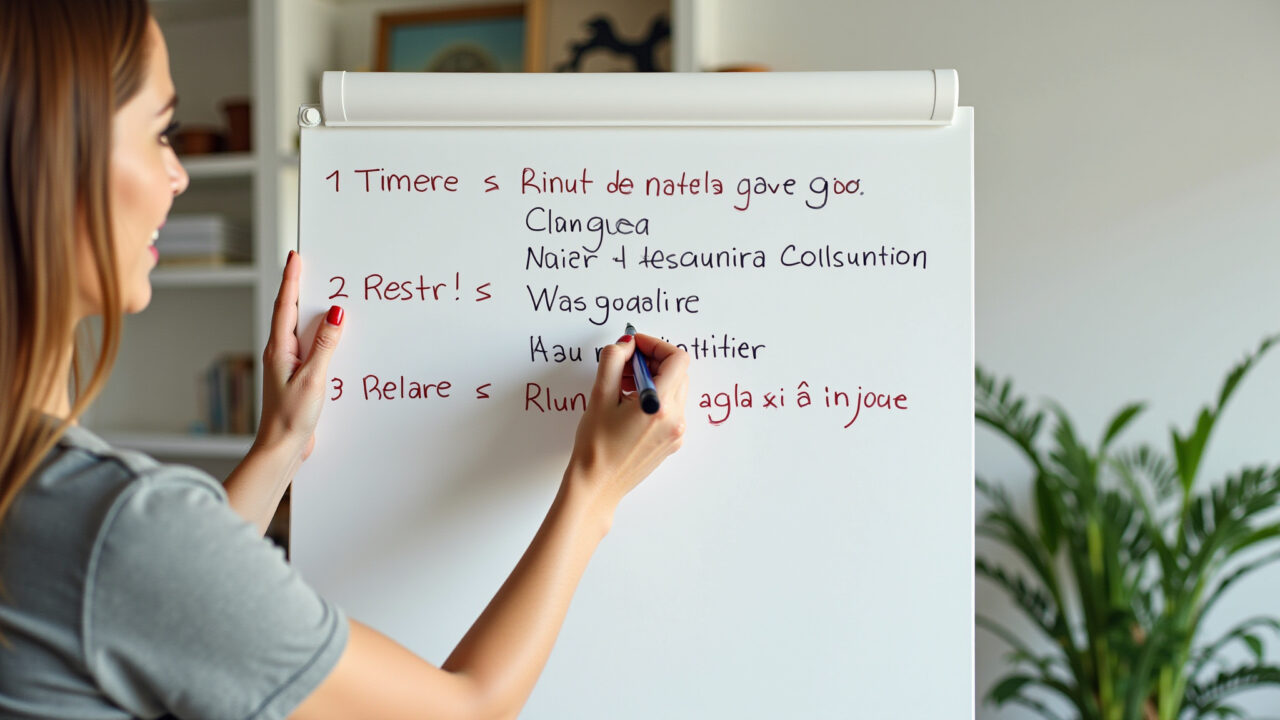 1 Timere s Rinut de natela gave goo.
Clanguea
Naier + tesaunira Collsuntion
2 Restr! s Was goaalire
Hau
3 Relare s agla xi â in joue